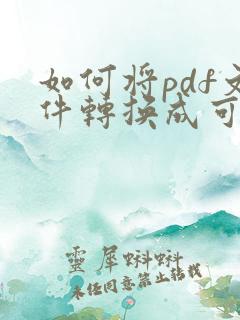 如何将pdf文
件轉换成可
靈犀蝌蝌
未经同意禁止转载